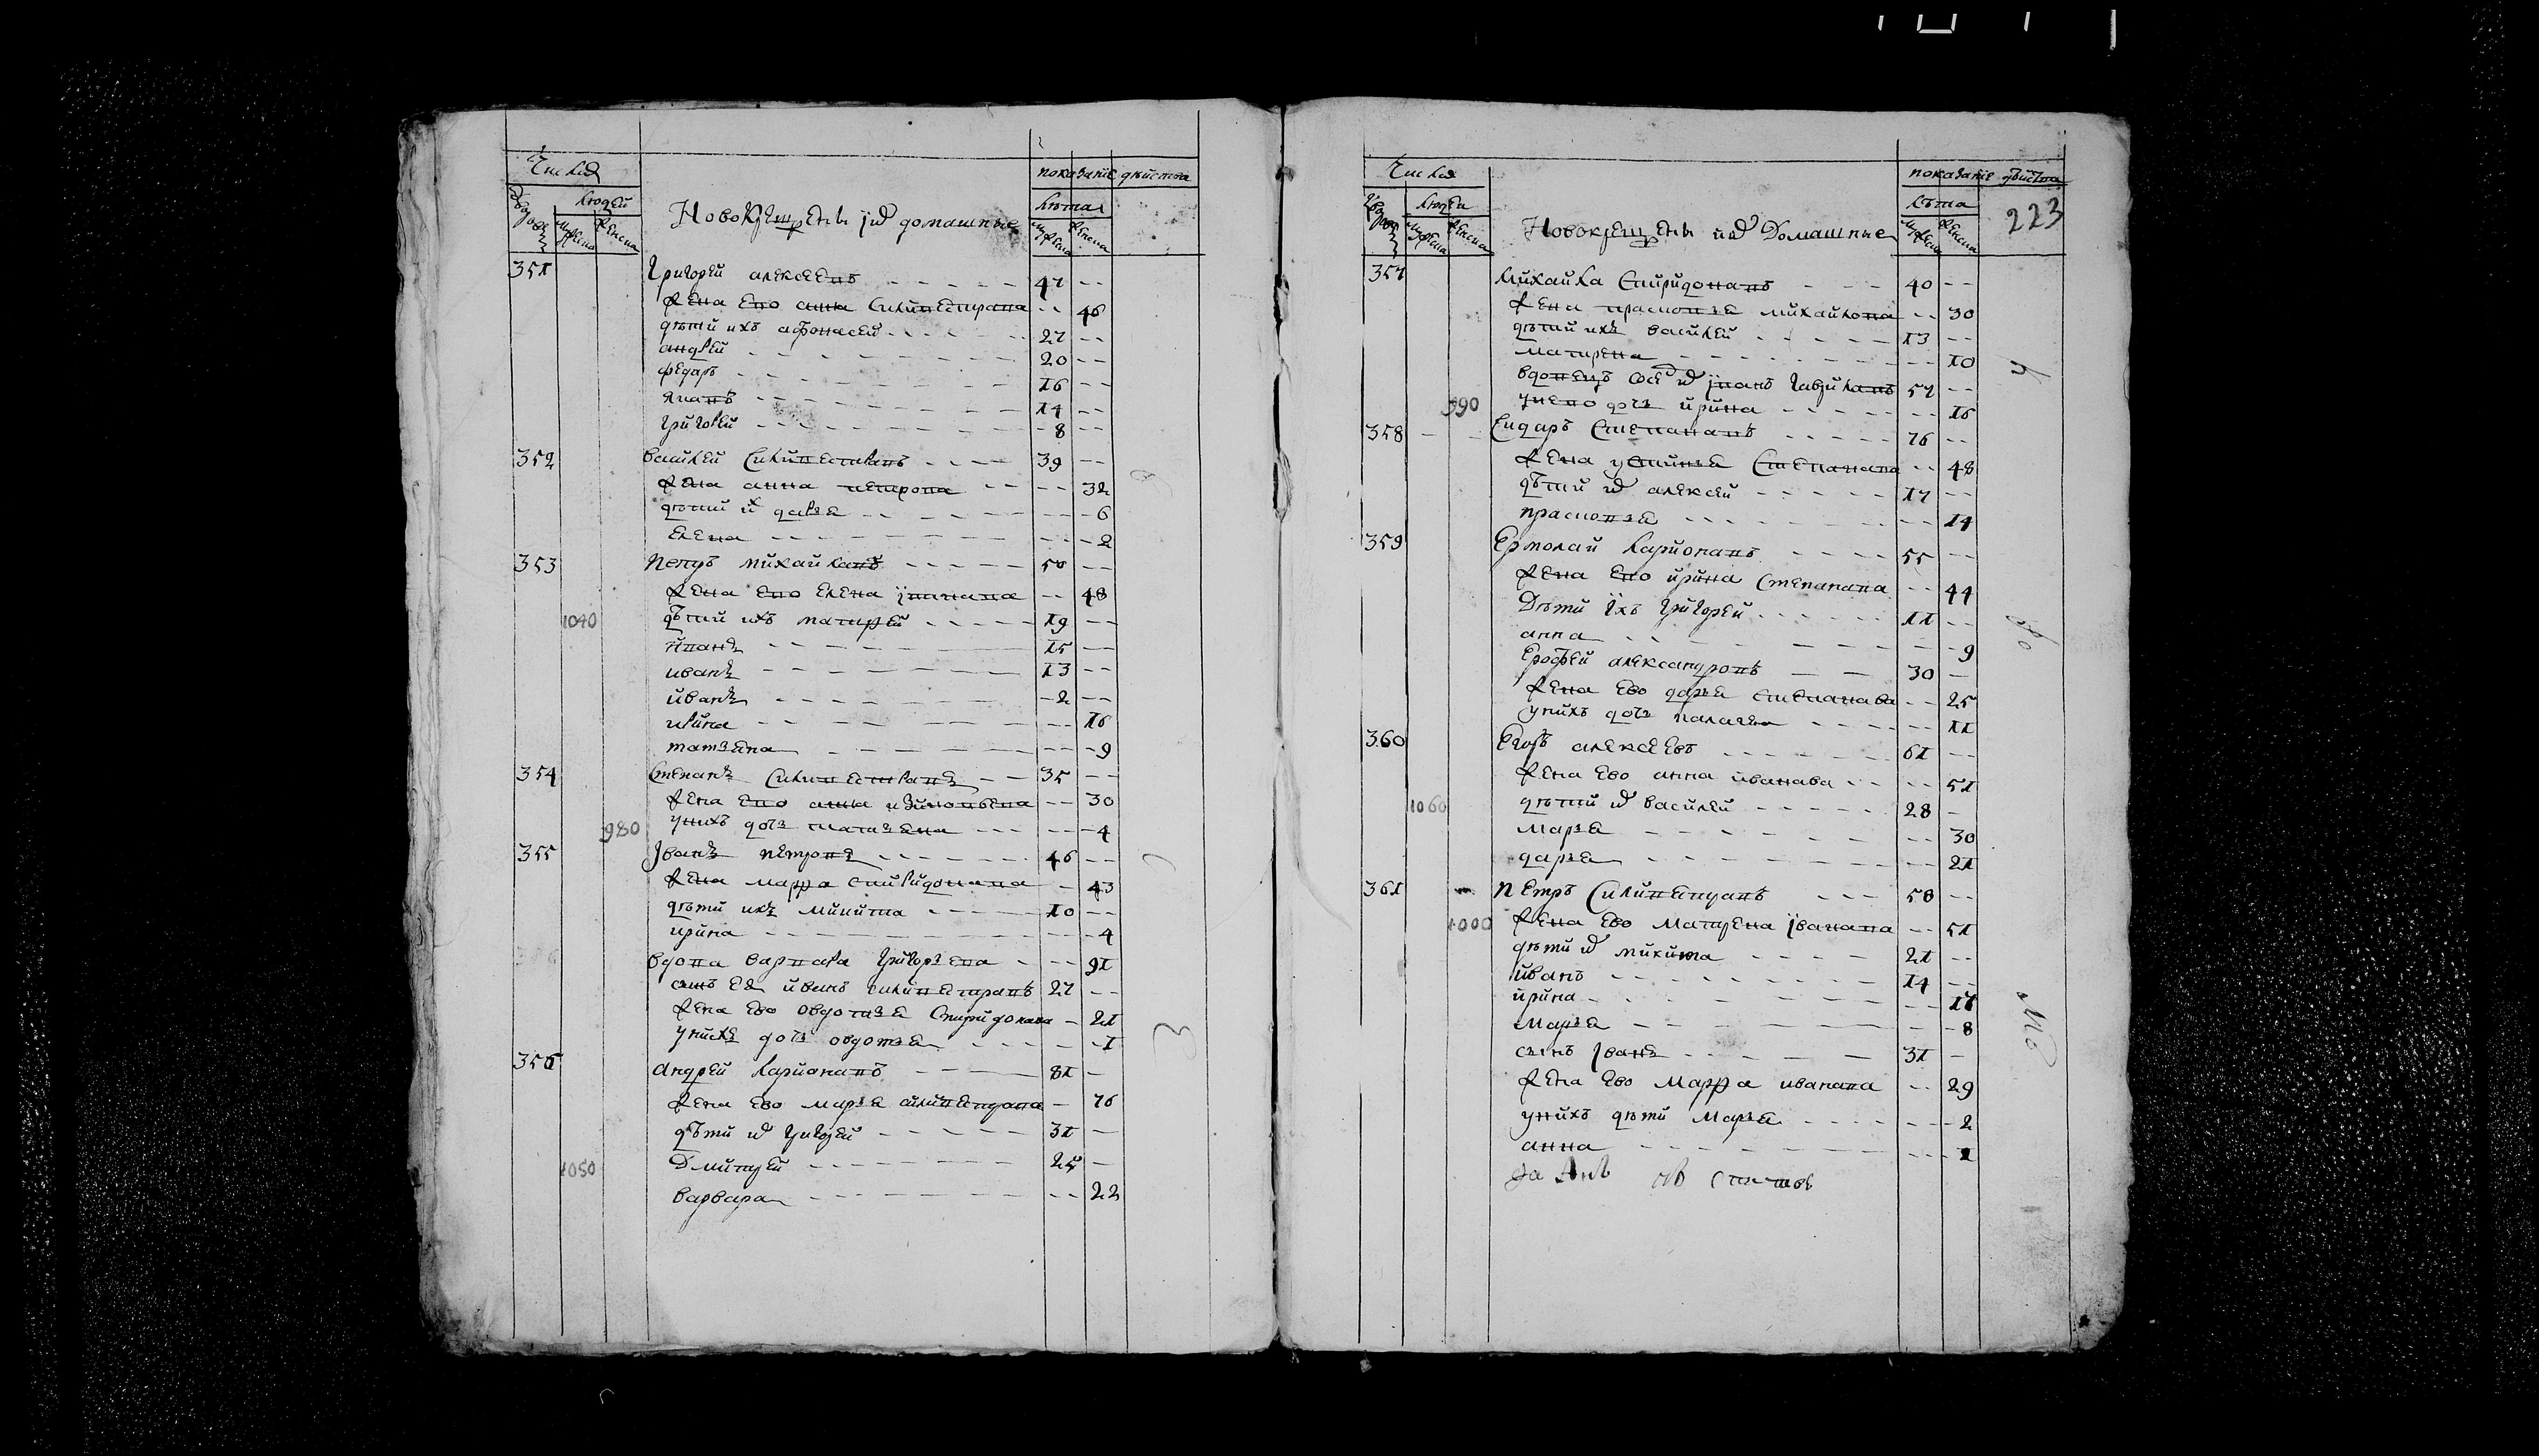 Числа
показание действа
дворовъ
людей
лѣта
мужеска
женска
Новокрещены их домашние
мужеска
женска
351 Григорей алексеевъ 47
жена ево анна силивестрава 46
дѣти ихъ афонасей 27
андрей 20
федаръ 16
иванъ 14
григорей 8
352 василей Силивестравъ 39
жена анна петрова 32
дѣти их дарья 6
елена 2
353 петръ михайлавъ 50
жена ево елена іванава 48
1040 дѣти ихъ матвей 19
иванъ 15
иванъ 13
иванъ 2
ирина 16
татьяна 9
354 степанъ Силивестравъ 35
жена ево анна 30
980 унихъ дочь татьяна 4
355 Іванъ петровъ 46
жена марфа спиридонава 43
дѣти ихъ микита 10
ирина 4
вдова варвара григорьева 91
сынъ ея иванъ силивестравъ 27
жена ево овдотья Спиридонава 21
унихъ дочь овдотья 1
356 андрей ларионавъ 81
жена ево марья силивестрава 76
дѣти их григорей 31
1050 Дмитрей 25
варвара 22
Числа
показание действа
дворовъ
людей
лѣта
223
мужеска
женска
Новокрещены их Домашние
мужеска
женска
357 михайла спиридонавъ 40
жена прасковья михайлова 30
дѣти ихъ василей 13
матрена 10
вдовецъ іванъ гаврилавъ 57
990 унево дочь ирина 16
358 Степанавъ 76
жена устинья Степанава 48
дѣти их алексей 17
прасковья 14
359 Ермолай ларионавъ 55
жена ево ирина степанава 44
Дѣти ихъ григорей 11
анна 9
Ерофей александровъ 30
жена ево дарья степанава 25
унихъ дочь палагея 11
360 алексеевъ 61
жена ево анна иванава 51
1060 дѣти их василей 28
марья 30
дарья 21
361 петръ Силивестравъ 58
1000 жена ево матрена іванава 51
дѣти их микита 21
иванъ 14
ирина 17
марья 8
сынъ Іванъ 31
жена ево марфа иванава 29
унихъ дѣти марья 2
анна 1